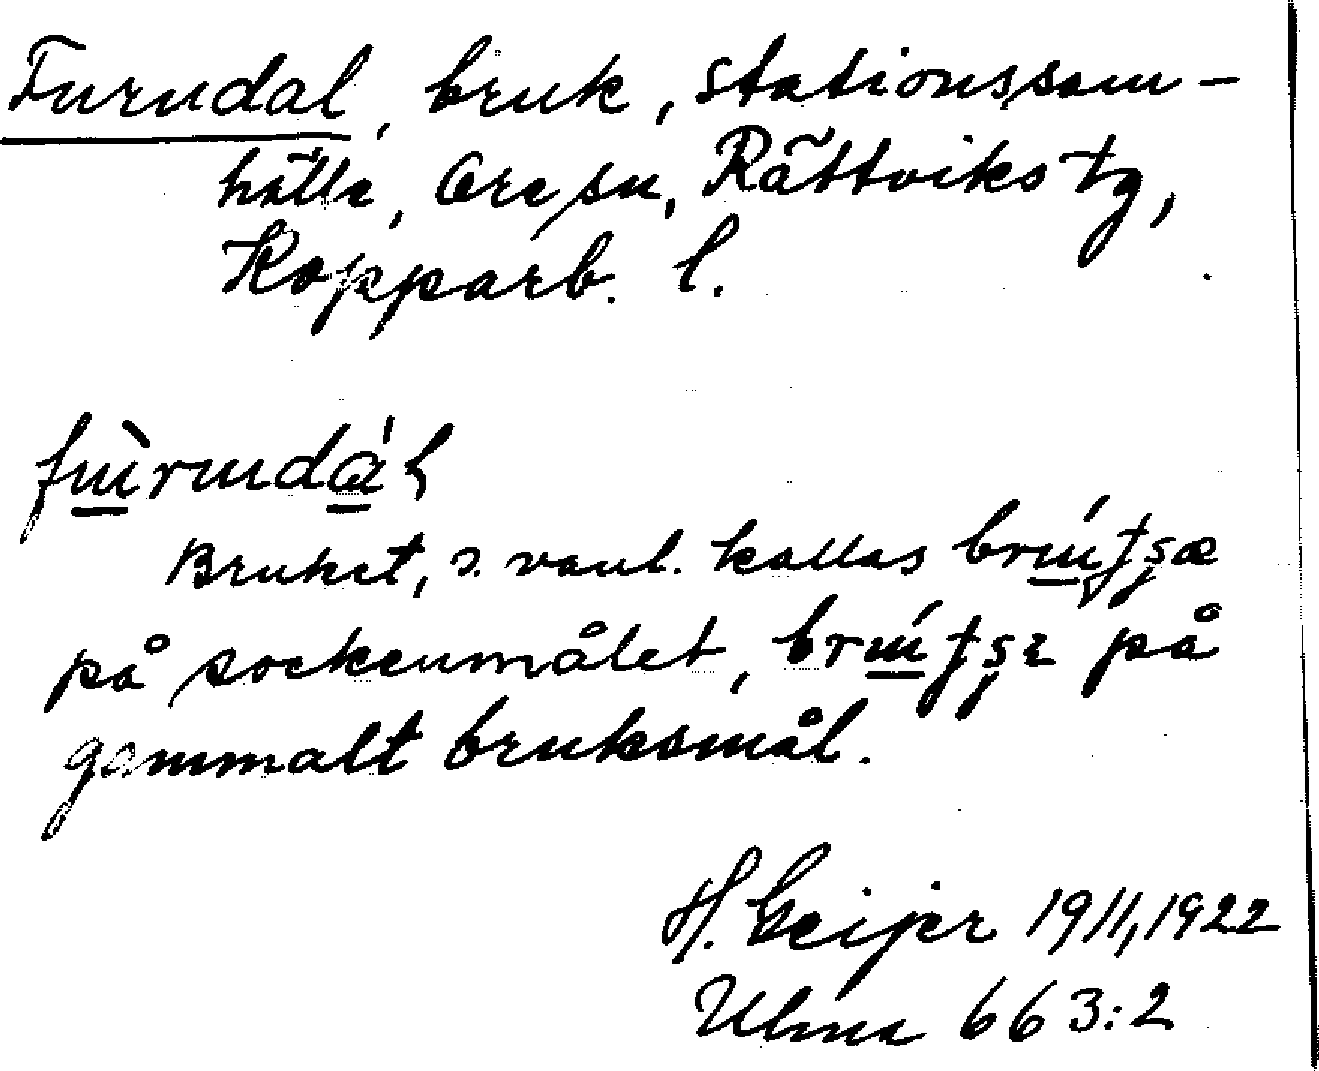 Furudal, bruk, stationssam-
hälle, Ore sn, Rättviks tg,
Kopparb. l.
fùrudál
Bruket, s. vanl. kallas
på sockenmålet, på
gammalt bruksmål.
H. Geijer 1911, 1922
Ulma 663:2